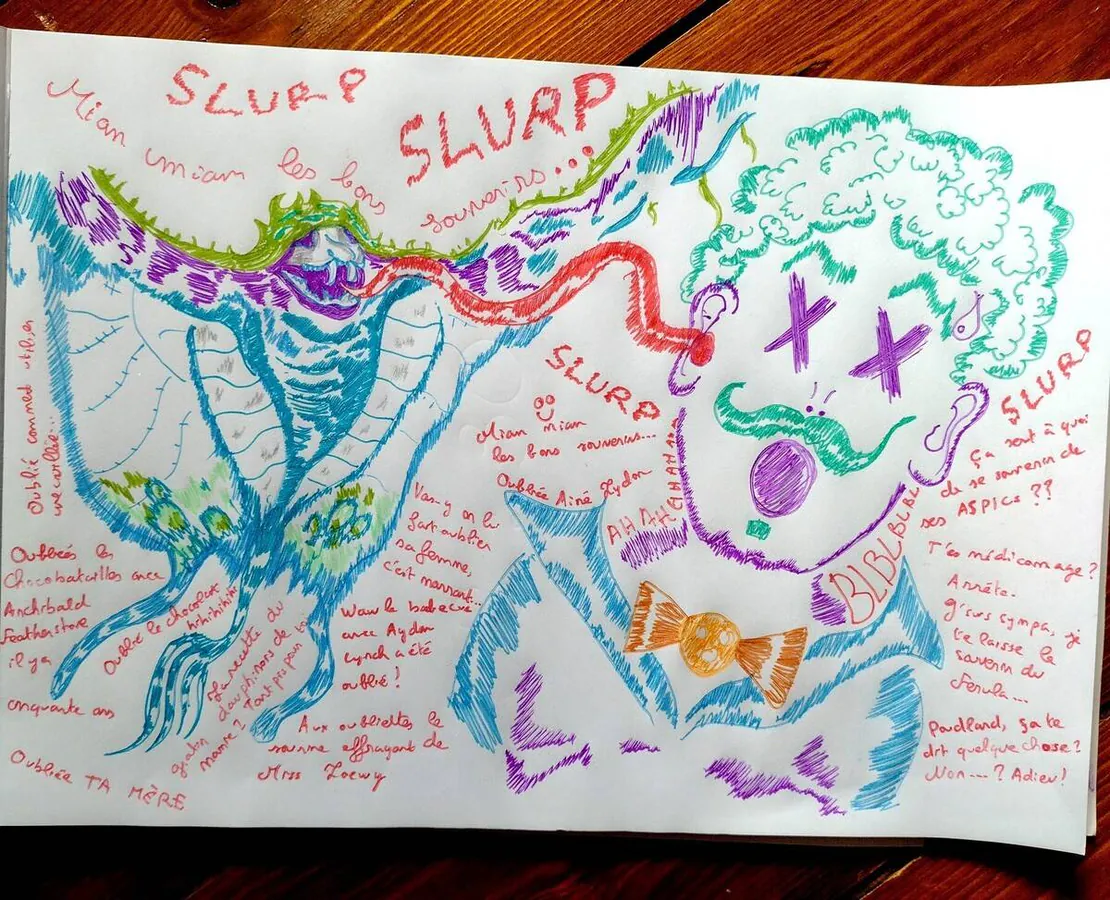 SLURP
SLURP
Miam miam les bons
souvenirs...
SLURP
Miam miam
les bons souvenirs...
Oubliée Ainé Lydon
AH AH AHAHAHA
BLBLBLBL
SLURP
Ça
sert à quoi
de se souvenir de
ses ASPICs ??
T'es médicomage ?
Arrête.
J'suis sympa, je
te laisse le
savoir du
Ferula...
Poudlard, ça te
dit quelque chose ?
Non... ? Adieu !
Oublié comment utiliser
Oubliés les
Chocobatailles avec
Archibald
Featherstone
il y a
cinquante ans
Oubliée TA MÈRE
Oublié le chocolat
hihihihihi
La recette du
gratin dauphinois de ta
mamie ? Tant pis pour
Vas-y on lui
fait oublier
sa femme,
c'est marrant...
Waw le barbecue
avec Aydan
Lynch a été
oublié !
Aux oubliettes le
sourire effrayant de
Miss Loewy